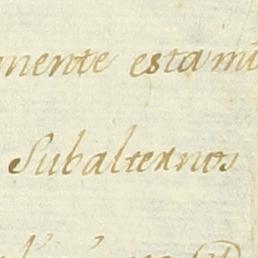 nente estami
Subalternos